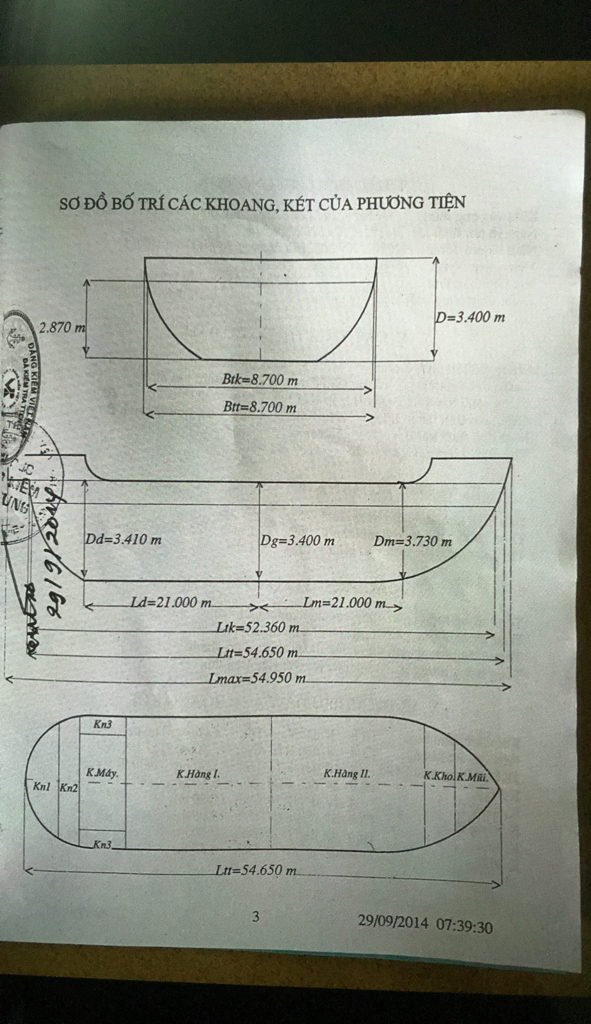 SƠ ĐỒ BỐ TRÍ CÁC KHOANG, KÉT CỦA PHƯƠNG TIỆN
2.870 m
D=3.400 m
Btk=8.700 m
Btt=8.700 m
ĐĂNG KIỂM VIỆT NAM
Dd=3.410 m
Dg=3.400 m
Dm=3.730 m
Ld=21.000 m
Lm=21.000 m
Ltk=52.360 m
Ltt=54.650 m
Lmax=54.950 m
Kn3
Kn1 Kn2 K.Máy. K.Hàng I. K.Hàng II. K.Kho. K.Mũi.
Kn3
Ltt=54.650 m
3
29/09/2014 07:39:30